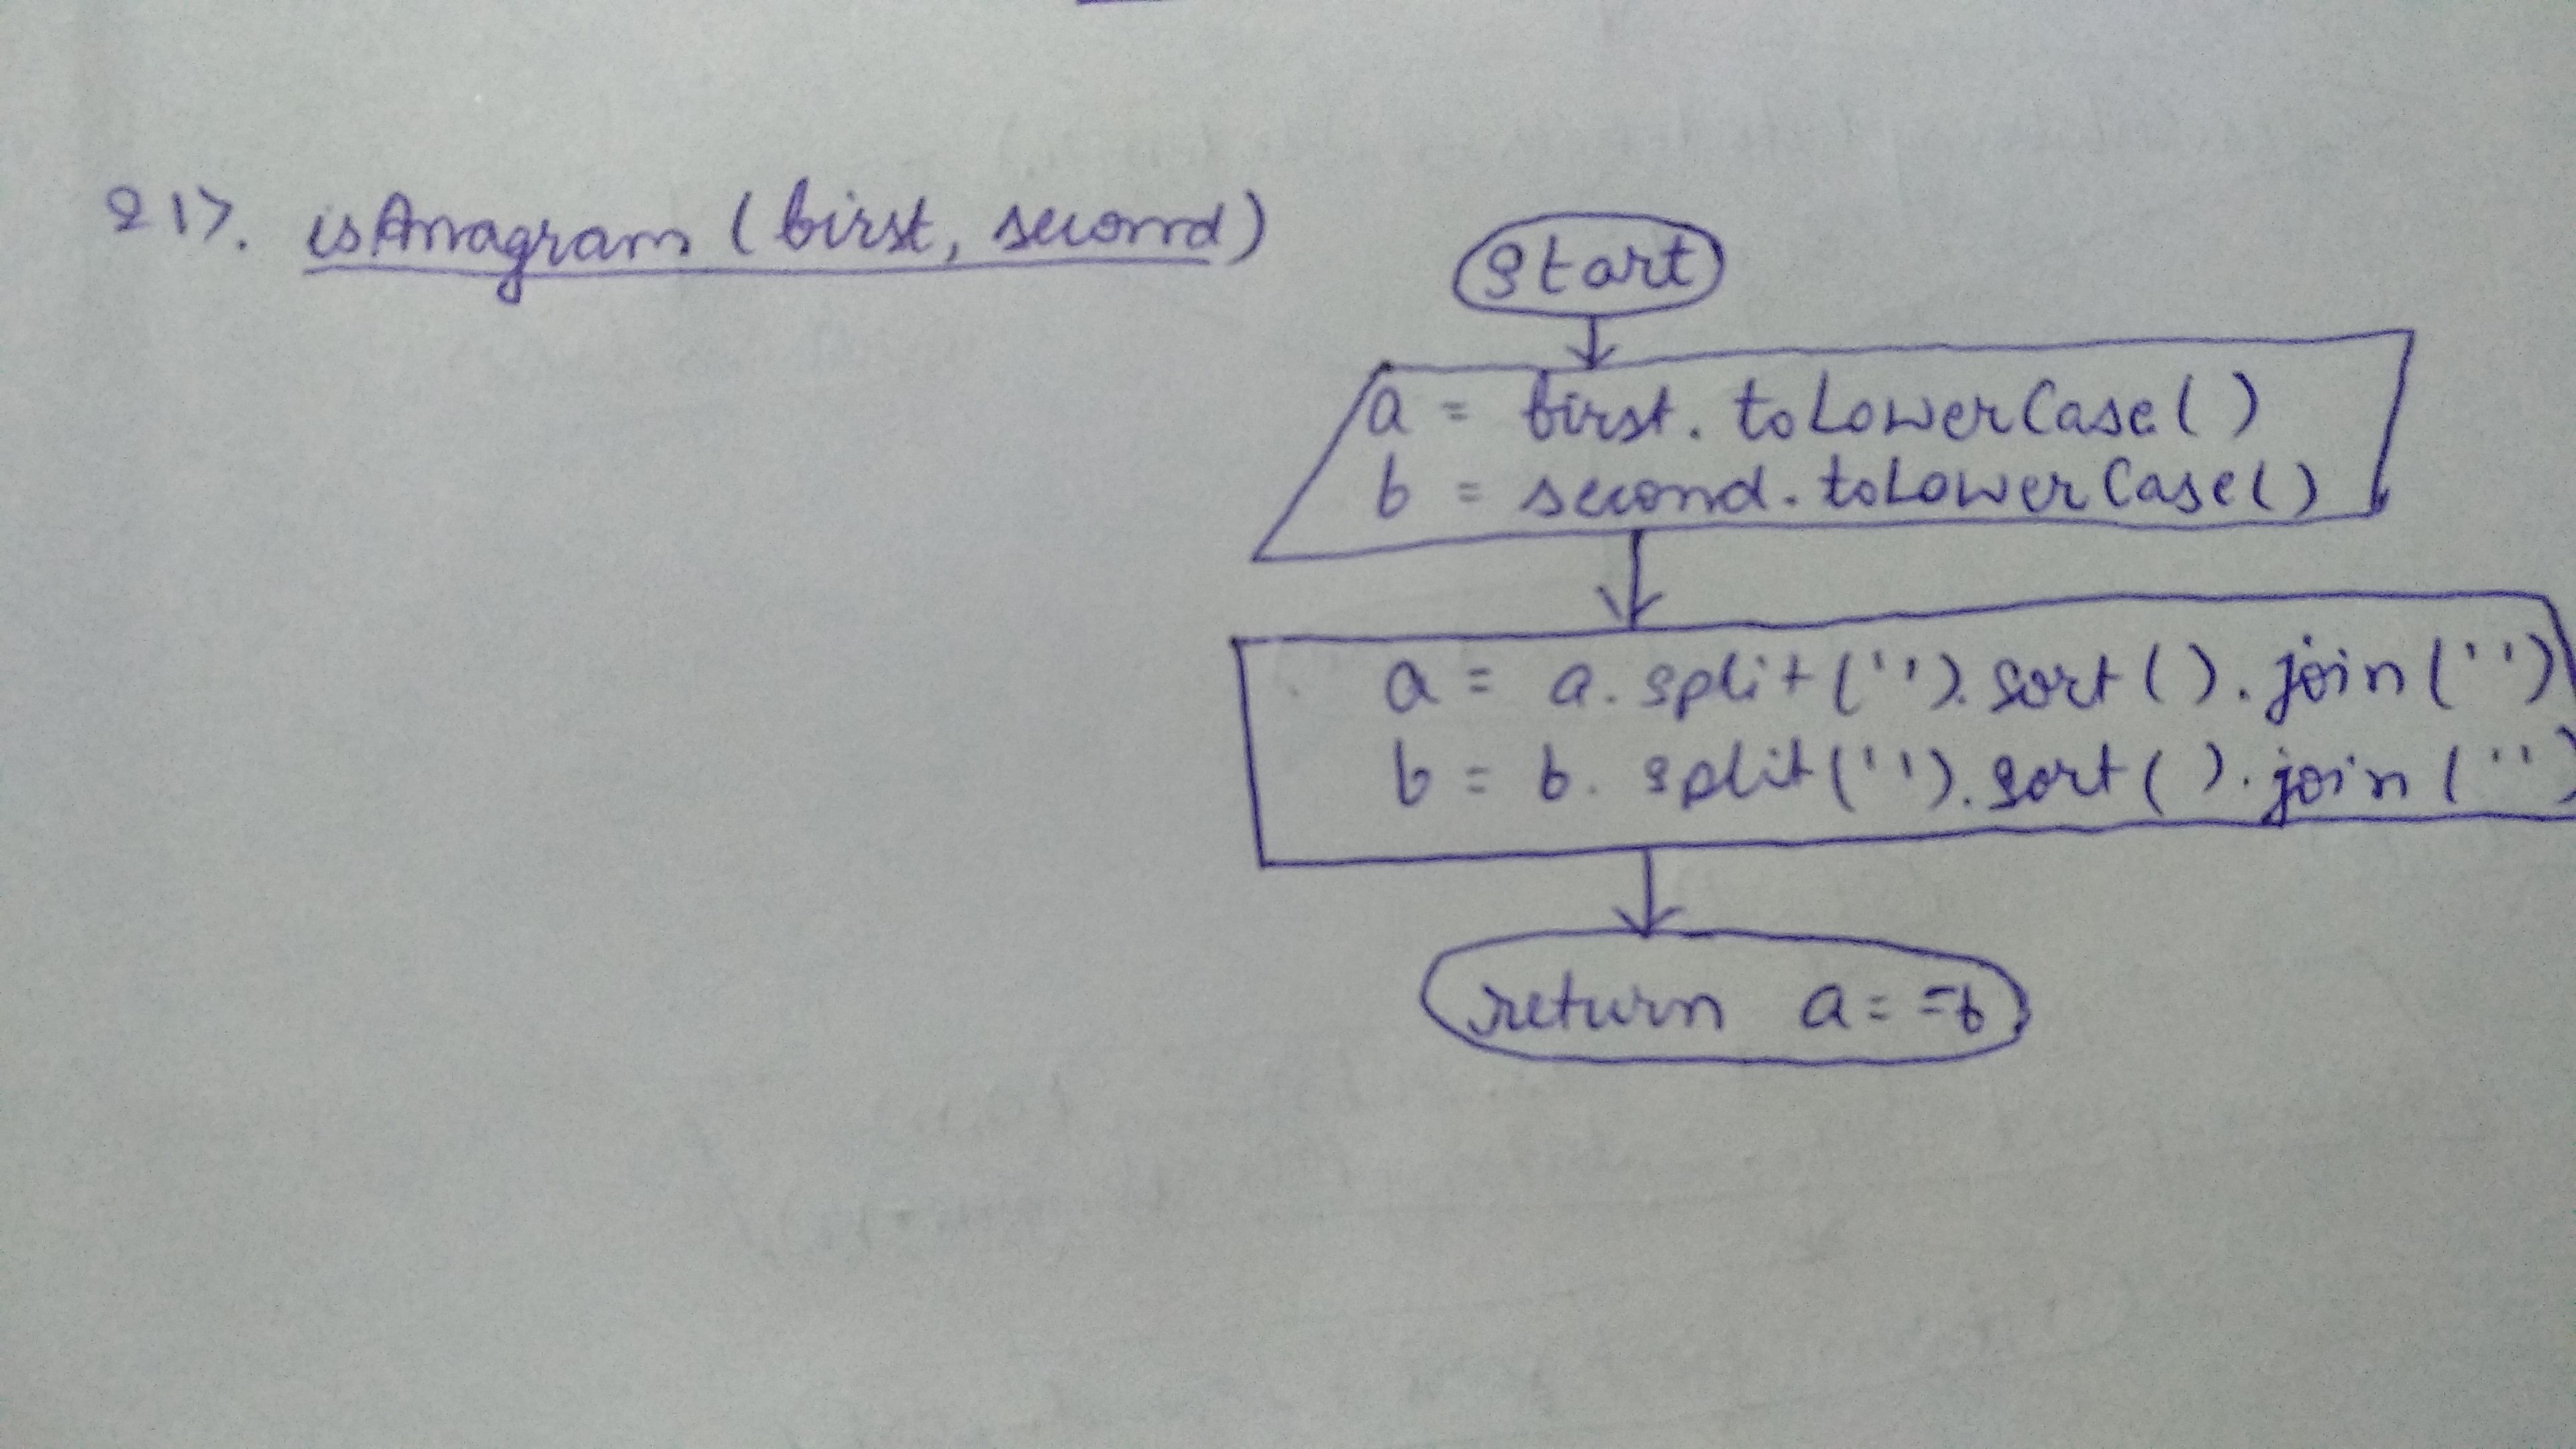 21>. isAnagram (first, second)
start
a = first. toLowerCase()
b = second. toLowerCase()
a = a. split(''). sort(). join('')
b = b. split(''). sort(). join('')
return a==b